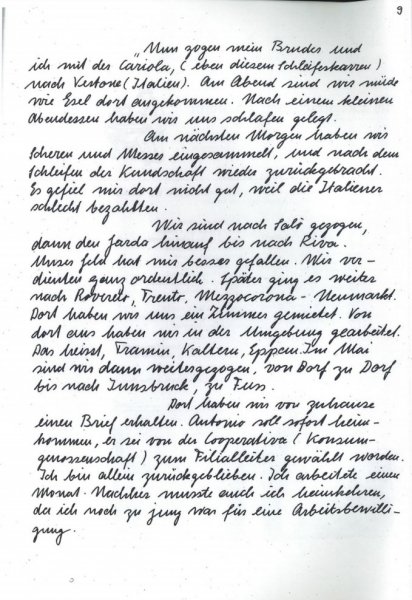 9
„Nun zogen mein Bruder und
ich mit der Cariola, (eben diesem Schleiferkarren)
nach Vestone (Italien). Am Abend sind wir müde
wie Esel dort angekommen. Nach einem kleinen
Abendessen haben wir uns schlafen gelegt.
Am nächsten Morgen haben wir
Scheren und Messer eingesammelt, und nach dem
Schleifen der Kundschaft wieder zurückgebracht.
Es gefiel mir dort nicht gut, weil die Italiener
schlecht bezahlten.
Wir sind nach Salò gezogen,
dann den Garda hinauf bis nach Riva.
Unser Geld hat mir besser gefallen. Wir ver-
dienten ganz ordentlich. Später ging es weiter
nach Rovereto, Trento, Mezzocorona - Neumarkt.
Dort haben wir uns ein Zimmer gemietet. Von
dort aus haben wir in der Umgebung gearbeitet.
Das heisst, Tramin, Kaltern, Eppan. Im Mai
sind wir dann weitergezogen, von Dorf zu Dorf
bis nach Innsbruck, zu Fuss.
Dort haben wir von zuhause
einen Brief erhalten. Antonio soll sofort heim-
kommen, er sei von der Cooperativa (Konsum-
genossenschaft) zum Filialleiter gewählt worden.
Ich bin allein zurückgeblieben. Ich arbeitete einen
Monat. Nachher musste auch ich heimkehren,
da ich noch zu jung war für eine Arbeitsbewilli-
gung.